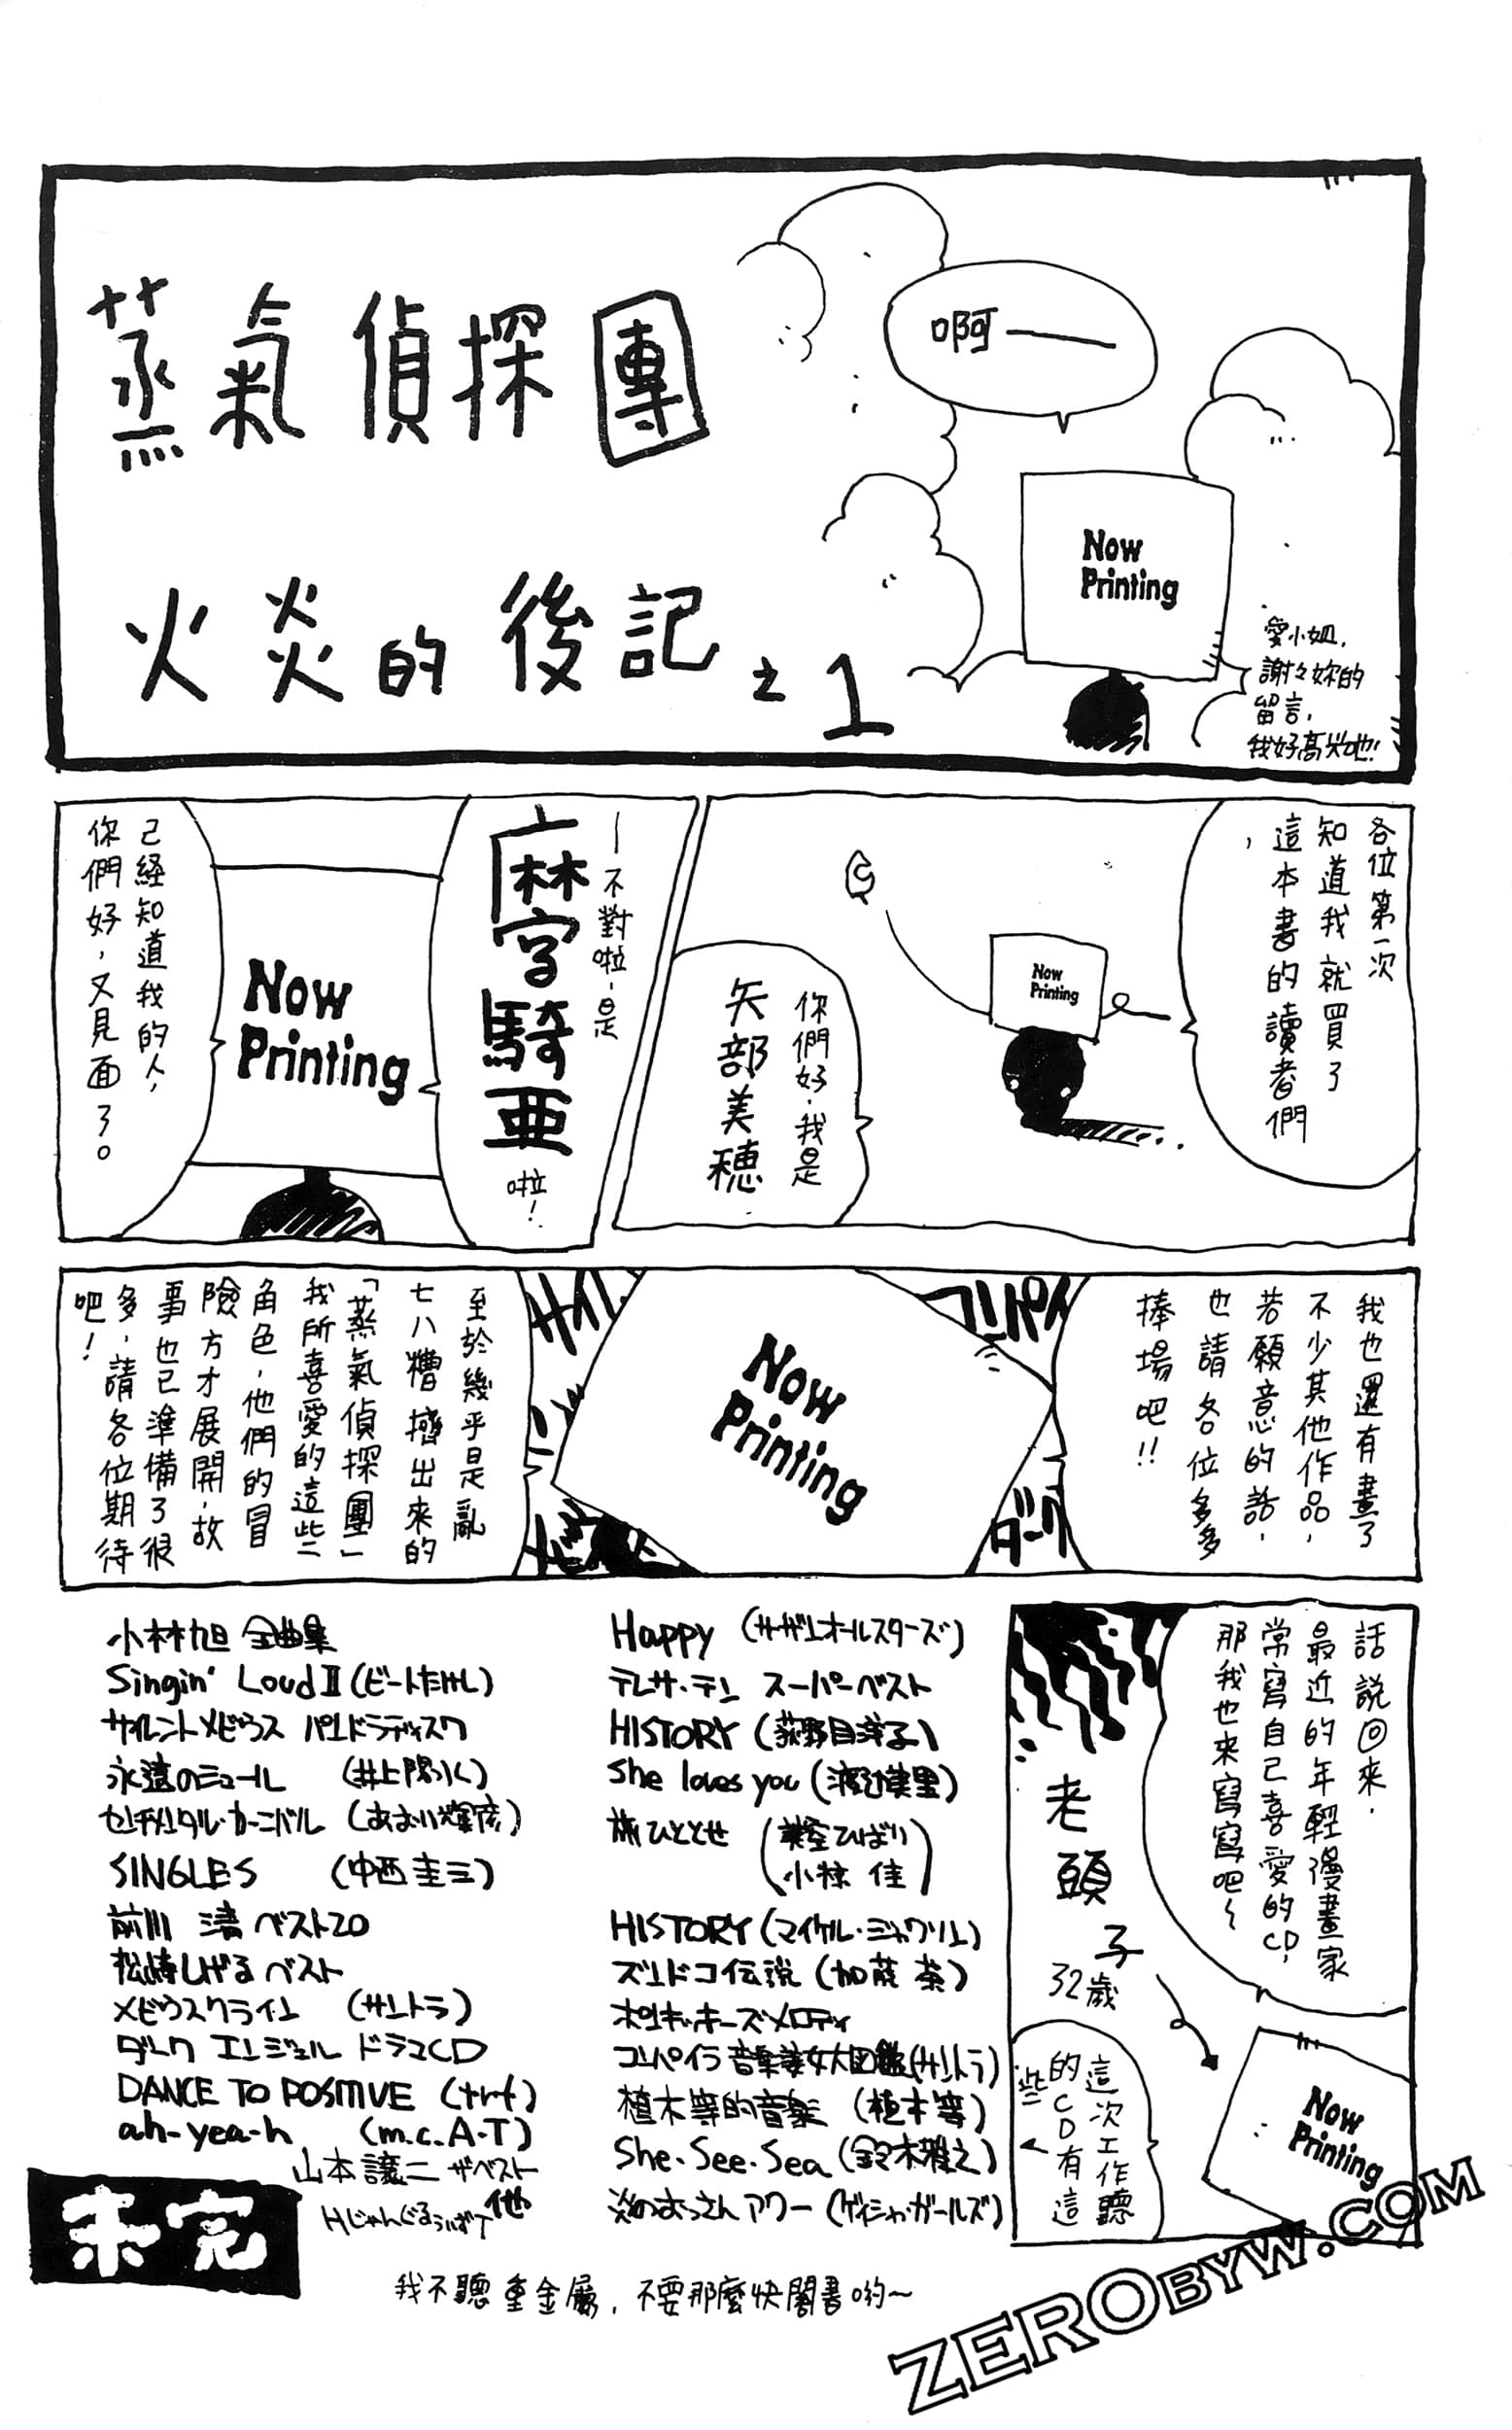 蒸氣偵探團
火炎的後記之1
啊——
Now
Printing
愛小姐，
謝々妳的
留言，
我好高兴吔！
各位第一次
知道我就買了
這本書的讀者們
，
Now
Printing
你們好，我是
矢部美穂
—不對啦，是
麻宮騎亜
啦！
Now
Printing
己経知道我的人，
你們好，又見面了。
我也還有畫了
不少其他作品，
若願意的話，
也請各位多多
捧場吧！！
コンパイル
ダーク
Now
Printing
至於幾乎是亂
七八糟擠出來的
「蒸氣偵探團」
我所喜愛的這些
角色，他們的冒
險方才展開，故
事也已準備了很
多，請各位期待
吧！
話說回來，
最近的年輕漫畫家
常寫自己喜愛的CD，
那我也來寫寫吧～
老頭子
32歲
Now
Printing
這次工作聽
的CD有這
些
Happy（サザンオールスターズ）
テレサ・テン スーパーベスト
HISTORY（荻野目洋子）
She loves you（渡辺美里）
旅ひととせ（美空ひばり
小椋 佳）
HISTORY（マイケル・ジャクソン）
ズンドコ伝説（加藤 茶）
ポンキッキーズメロディ
コンパイラ 音楽美女大図鑑（サントラ）
植木等的音楽（植木等）
She・See・Sea（鈴木雅之）
炎のおっさんアワー（ゲイシャ・ガールズ）
小林旭 全曲集
Singin' Loud II（ビートたけし）
サイレントメビウス パンドラディスク
永遠のミュール（井上陽水）
センチメンタル・カーニバル（あおい輝彦）
SINGLES（中西圭三）
前川 清 ベスト20
松崎しげる ベスト
メビウスクライン（サントラ）
ダーク エンジェル ドラマCD
DANCE TO POSITIVE（trf）
ah-yea-h（m.c.A・T）
山本譲二 ザ・ベスト
他
未完
我不聽重金屬，不要那麼快闔書喲～
ZEROBYW.COM